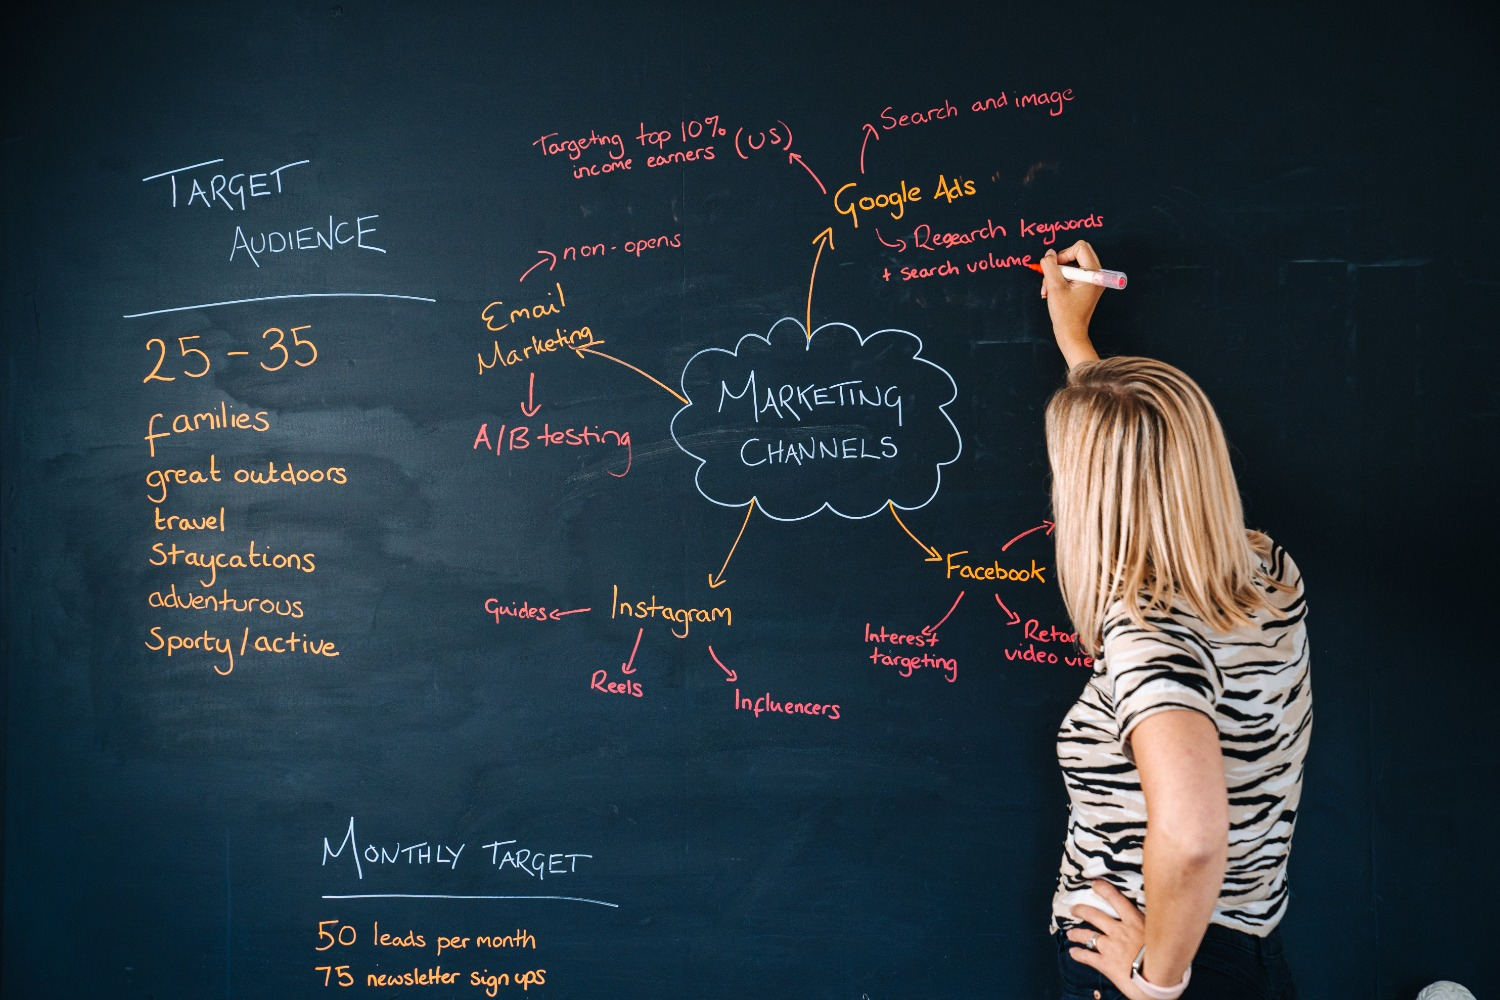 TARGET
AUDIENCE
25-35
families
great outdoors
travel
Staycations
adventurous
Sporty/active
MARKETING
CHANNELS
Email
Marketing
non-opens
A/B testing
Google Ads
Targeting top 10%
income earners (US)
Search and image
Research keywords
+ search volume
Instagram
Guides
Reels
Influencers
Facebook
Interest
targeting
video
MONTHLY TARGET
50 leads per month
75 newsletter sign ups